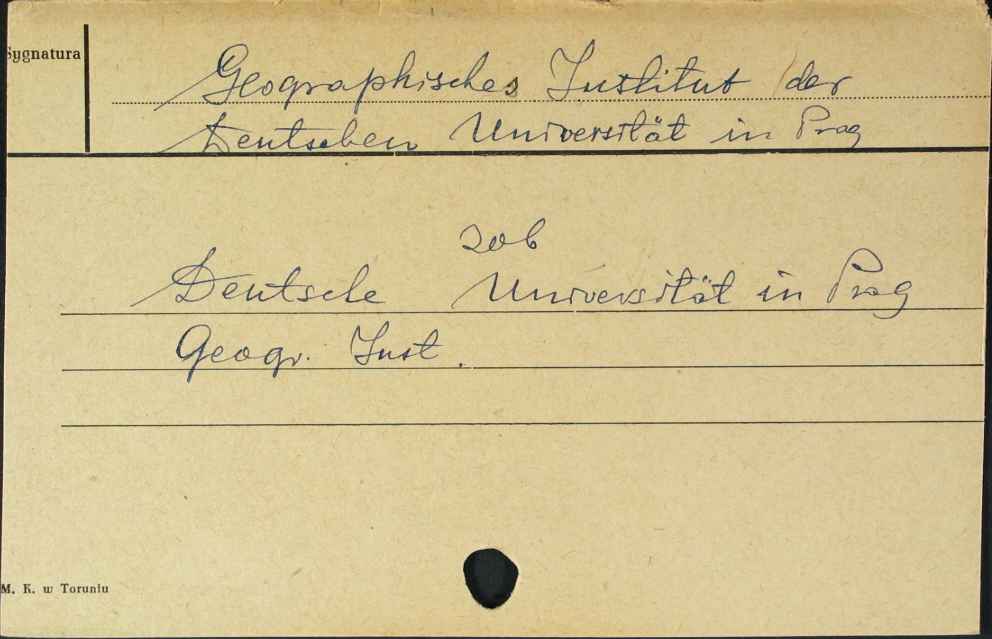 Sygnatura
Geographisches Institut der
Deutschen Universität in Prag
zob
Deutsche Universität in Prag
Geogr. Inst.
M. K. w Toruniu